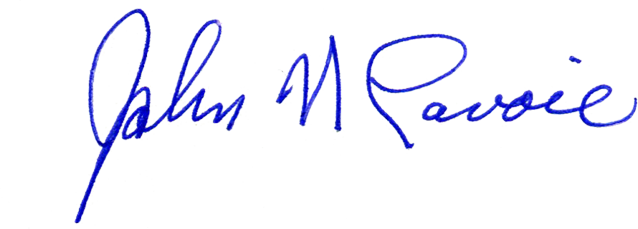 John N Lavoie